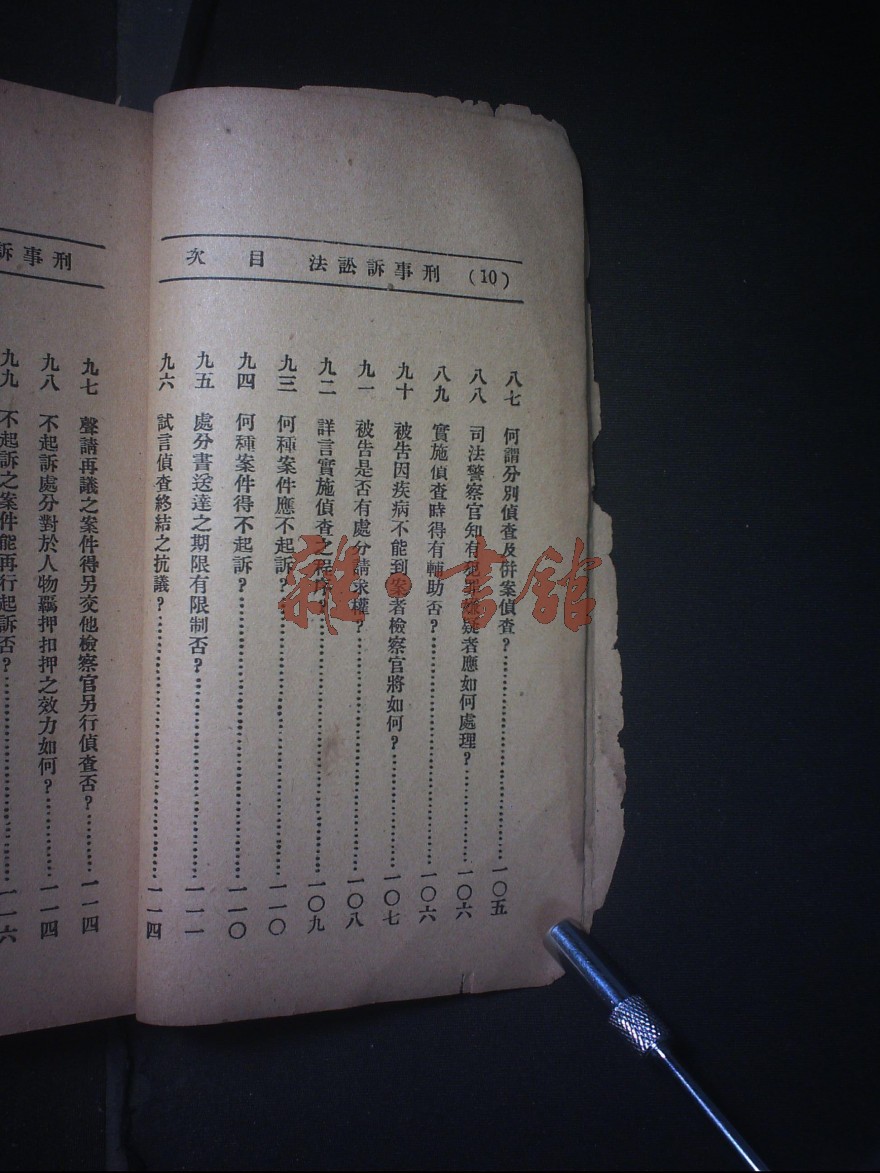 (10) 刑事訴訟法 目次
八七 何謂分別偵查及併案偵查?……一〇五
八八 司法警察官知有犯罪嫌疑者應如何處理?……一〇六
八九 實施偵查時得有輔助否?……一〇六
九十 被告因疾病不能到案者檢察官將如何?……一〇七
九一 被告是否有處分請求權?……一〇八
九二 詳言實施偵查之程序?……一〇九
九三 何種案件應不起訴?……一一〇
九四 何種案件得不起訴?……一一〇
九五 處分書送達之期限有限制否?……一一一
九六 試言偵查終結之抗議?……一一四
刑事訴
九七 聲請再議之案件得另交他檢察官另行偵查否?……一一四
九八 不起訴處分對於人物羈押扣押之效力如何?……一一四
九九 不起訴之案件能再行起訴否?……一一六
雜·書館